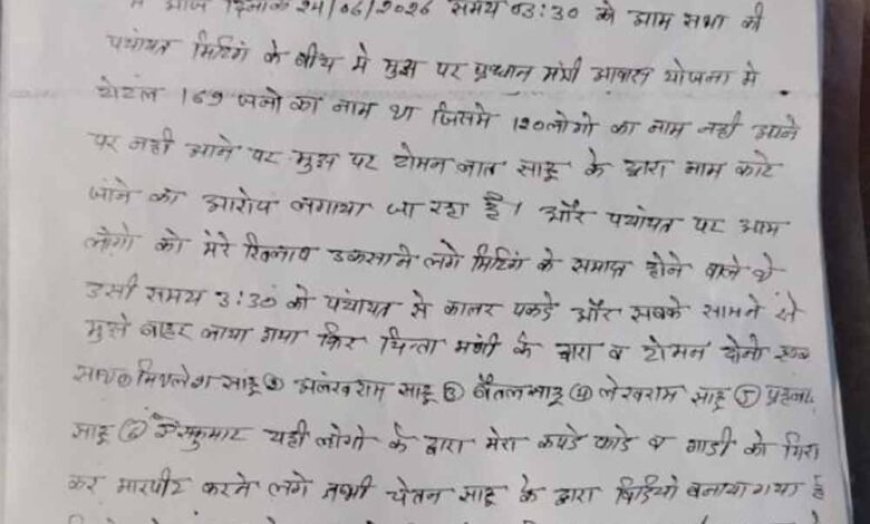 मे आज दिनांक 24/06/2026 समय 03:30 को आम सभा की
पंचायत मिटिंग के बीच मे मुझ पर प्रधान मंत्री आवास योजना मे
टोटल 169 जनो का नाम था जिसमे 120 लोगो का नाम नही आने
पर नही आने पर मुझ पर टोमन लाल साहू के द्वारा नाम काटे
जाने का आरोप लगाया जा रहा है। और पंचायत पर आम
लोगो को मेरे खिलाप उकसाने लगे मिटिंग के समाप्त होने वाले थे
उसी समय 3:30 को पंचायत से कालर पकडे और सबके सामने से
मुझे बाहर लाया गया फिर चिन्ता मणी के द्वारा व टोमन दोनो
साथ ① मिथलेश साहू ② अलखराम साहू ③ बैतल साहू ④ लेखराम साहू ⑤
साहू ⑥ यही लोगो के द्वारा मेरा कपडे फाडे व गाडी को गिरा
कर मारपीट करने लगे तभी चेतन साहू के द्वारा विडियो बनाया गया है